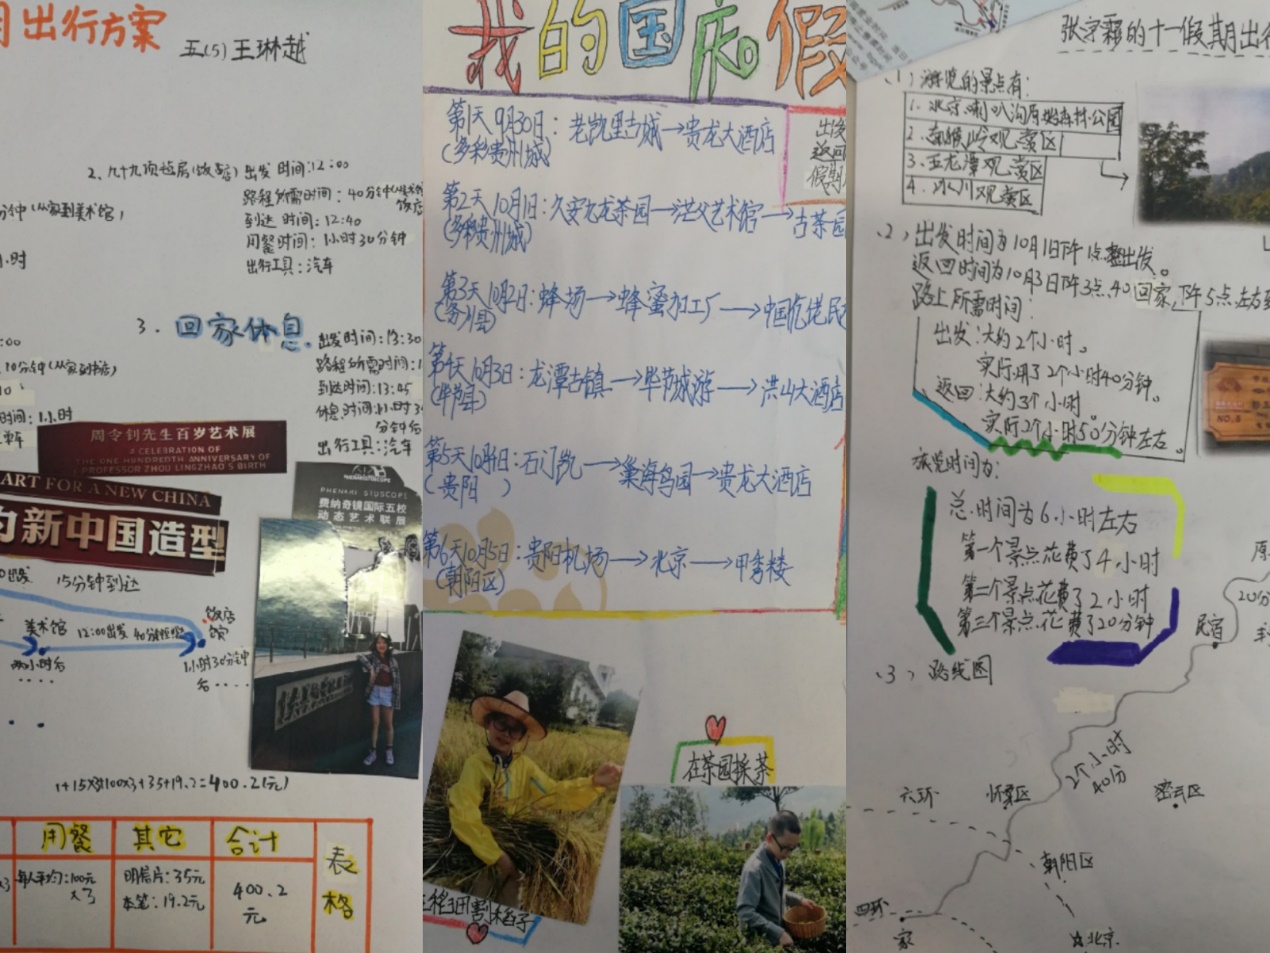 月出行方案
五(5)王琳越
2、九十九顶毡房(饭店)
出发时间:12:00
路程所需时间:40分钟(从美术馆
饭店
到达时间:12:40
用餐时间:1小时30分钟
出行工具:汽车
分钟(从家到美术馆)
小时
3.回家休息
出发时间:13:30
路程所需时间:1
到达时间:13:45
休息时间:1小时3
分钟后
出行工具:汽车
:00
10分钟(从家到书店)
时间:1小时
单车
周令钊先生百岁艺术展
A CELEBRATION OF
THE ONE HUNDREDTH ANNIVERSARY OF
PROFESSOR ZHOU LINGZHAO'S BIRTH
ART FOR A NEW CHINA
的新中国造型
PHENAKISTISCOPE
费纳奇镜国际五校
动态艺术联展
15分钟到达
美术馆
12:00出发
饭店
1小时30分钟
后....
1+15×3+100×3+35+19.2=400.2(元)
用餐
其它
合计
表格
每人平均:100元
×3
明信片:35元
本笔:19.2元
400.2
元
我的国庆假
第1天9月30日:老凯里古城→贵龙大酒店
(多彩贵州城)
出发
返回
假期
第2天10月1日:久安九龙茶园→泩父艺术馆→古茶园
(多彩贵州城)
第3天10月2日:蜂场→蜂蜜加工厂→中国仡佬民
(务川县)
第4天10月3日:龙潭古镇→毕节城游→洪山大酒店
第5天10月4日:石门凯→巢海鸟园→贵龙大酒店
(贵阳)
第6天10月5日:贵阳机场→北京→甲秀楼
(朝阳区)
在茶园採茶
在稻田割稻子
张字霖的十一假期出行
(1)游览的景点有:
1.北京喇叭沟原始森林公园
2.南猴岭观赏区
3.五龙潭观赏区
4.冰川观赏区
(2)出发时间为10月1日下午1点整出发。
返回时间为10月3日下午3点40回家,下午5点左右到
路上所需时间:
出发:大约2个小时。
实际用了2个小时40分钟。
返回:大约3个小时。
实际2个小时50分钟左右。
旅览时间为:
总时间为6小时左右
第一个景点花费了4小时
第二个景点花费了2小时
第三个景点花费了20分钟
(3)路线图
民宿
20分
2个小时
40分
六环
怀柔区
密云区
朝阳区
四环
家
北京